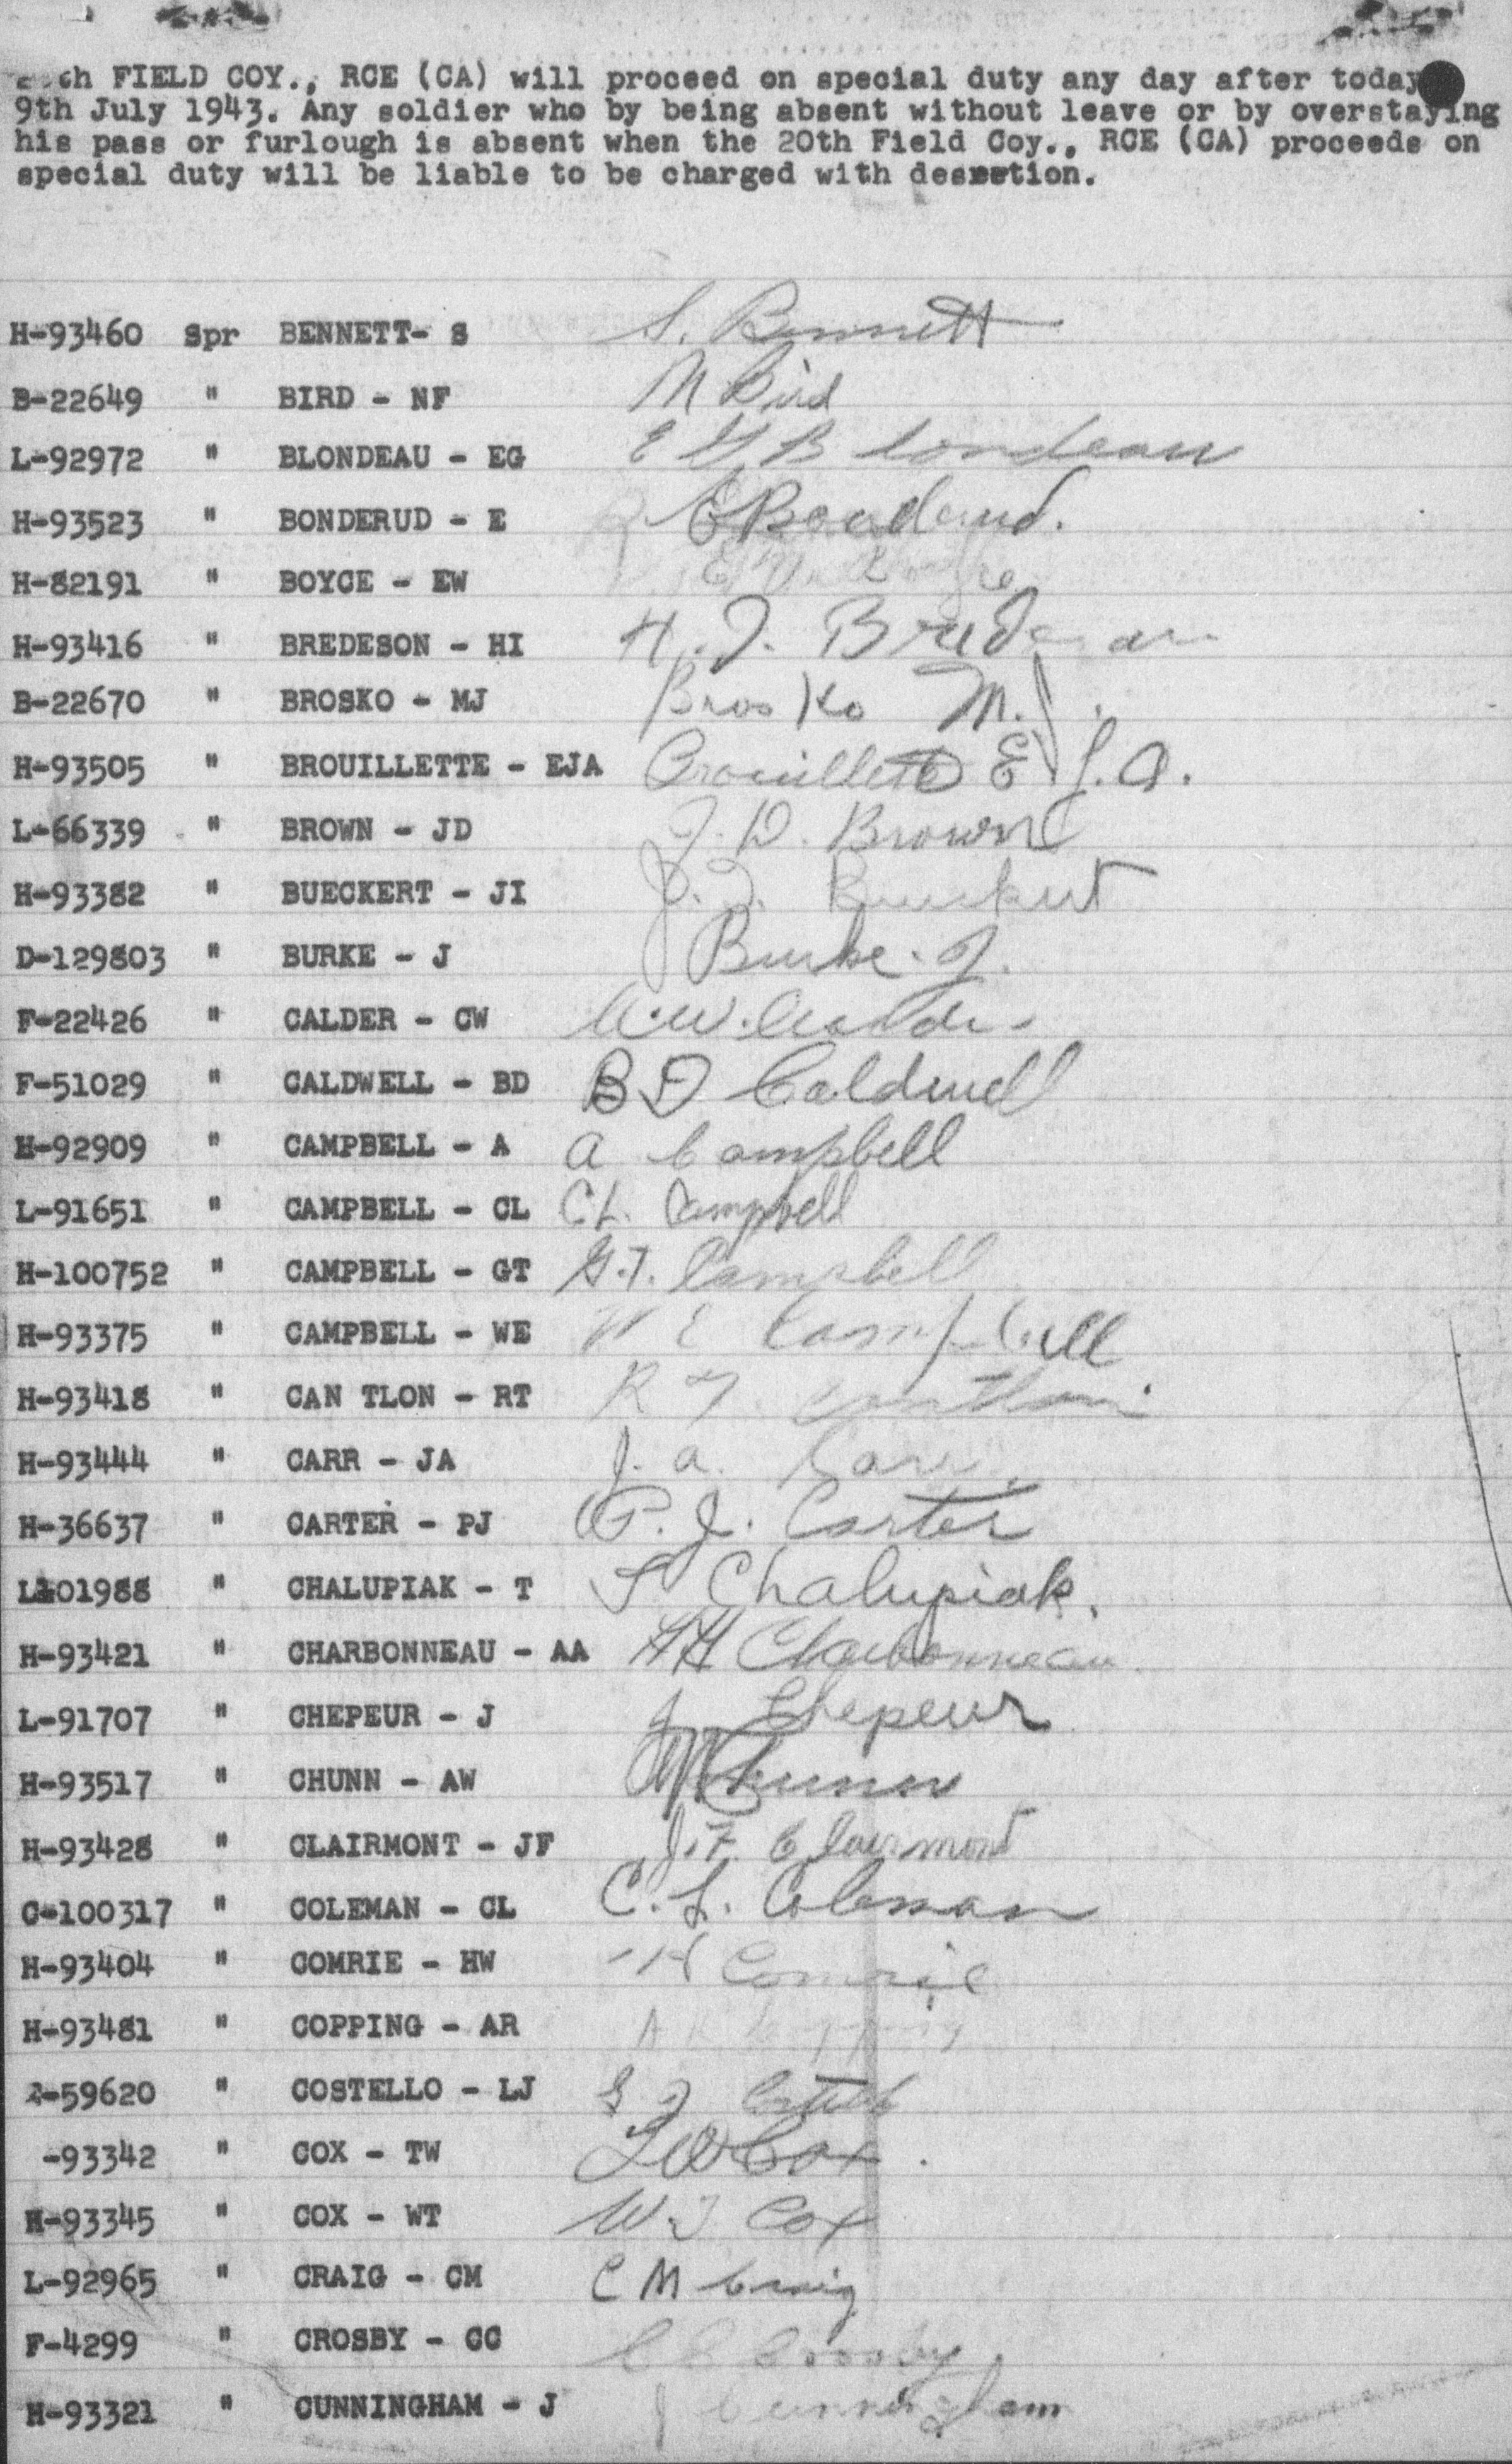 FIELD COY., RCE (CA) will proceed on special duty any day after today
9th July 1943. Any soldier who by being absent without leave or by overstaying
his pass or furlough is absent when the 20th Field Coy., RCE (CA) proceeds on
special duty will be liable to be charged with
H-93460 Spr BENNETT- S S. Bennett
B-22649 " BIRD - NF N Bird
L-92972 " BLONDEAU - EG E G Blondeau
H-93523 " BONDERUD - E E Bonderud.
H-82191 " BOYCE - EW E W Boyce
H-93416 " BREDESON - HI H. I.
B-22670 " BROSKO - MJ Brosko M.J.
H-93505 " BROUILLETTE - EJA Brouillette E J.A.
L-66339 " BROWN - JD J. D. Brown
H-93382 " BUECKERT - JI J. I. Bueckert
D-129803 " BURKE - J Burke. J.
F-22426 " CALDER - CW C.W. Calder
F-51029 " CALDWELL - BD B D Caldwell
H-92909 " CAMPBELL - A A Campbell
L-91651 " CAMPBELL - CL C L. Campbell
H-100752 " CAMPBELL - GT G.T. Campbell
H-93375 " CAMPBELL - WE W E Campbell
H-93418 " CAN TLON - RT R T Cantlon
H-93444 " CARR - JA J. A. Carr.
H-36637 " CARTER - PJ P. J. Carter
L101988 " CHALUPIAK - T T Chalupiak.
H-93421 " CHARBONNEAU - AA AA Charbonneau
L-91707 " CHEPEUR - J J Chepeur
H-93517 " CHUNN - AW AW Chunn
H-93428 " CLAIRMONT - JF J.F. Clairmont
C-100317 " COLEMAN - CL C. L. Coleman
H-93404 " COMRIE - HW H Comrie
H-93481 " COPPING - AR A R Copping
-59620 " COSTELLO - LJ L J Costello
-93342 " COX - TW T W Cox.
H-93345 " COX - WT W T Cox
L-92965 " CRAIG - CM C M Craig
F-4299 " CROSBY - CC C C Crosby
H-93321 " CUNNINGHAM - J J Cunningham